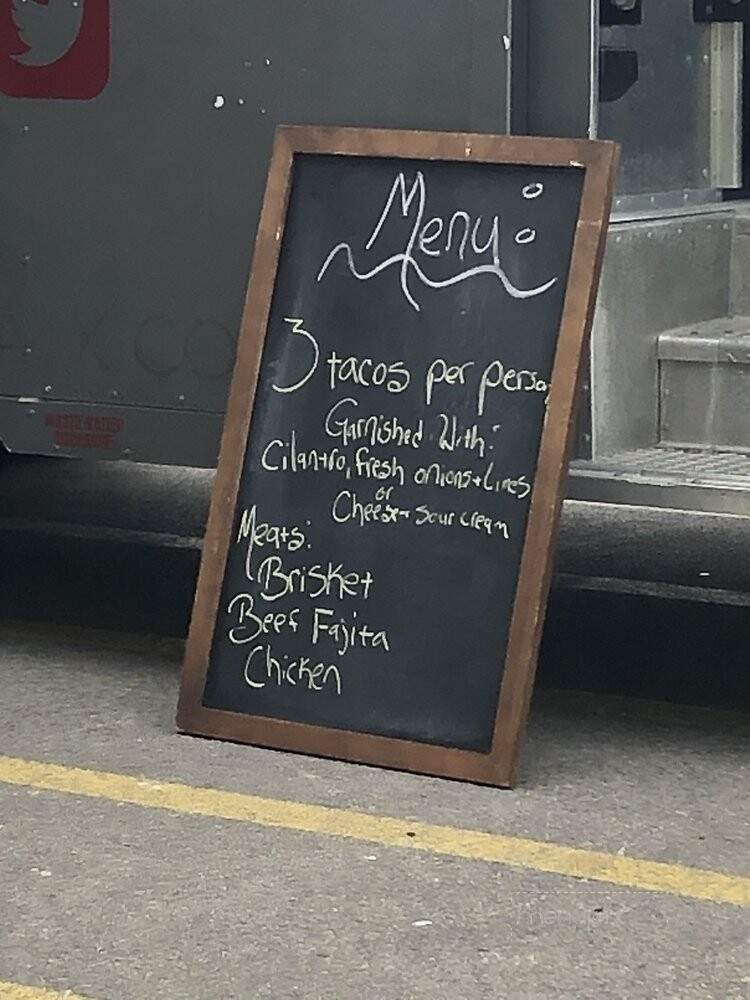 Menu:
3 tacos per person
Garnished With:
Cilantro, fresh onions + Limes
or
Cheese + sour cream
Meats:
Brisket
Beef Fajita
Chicken